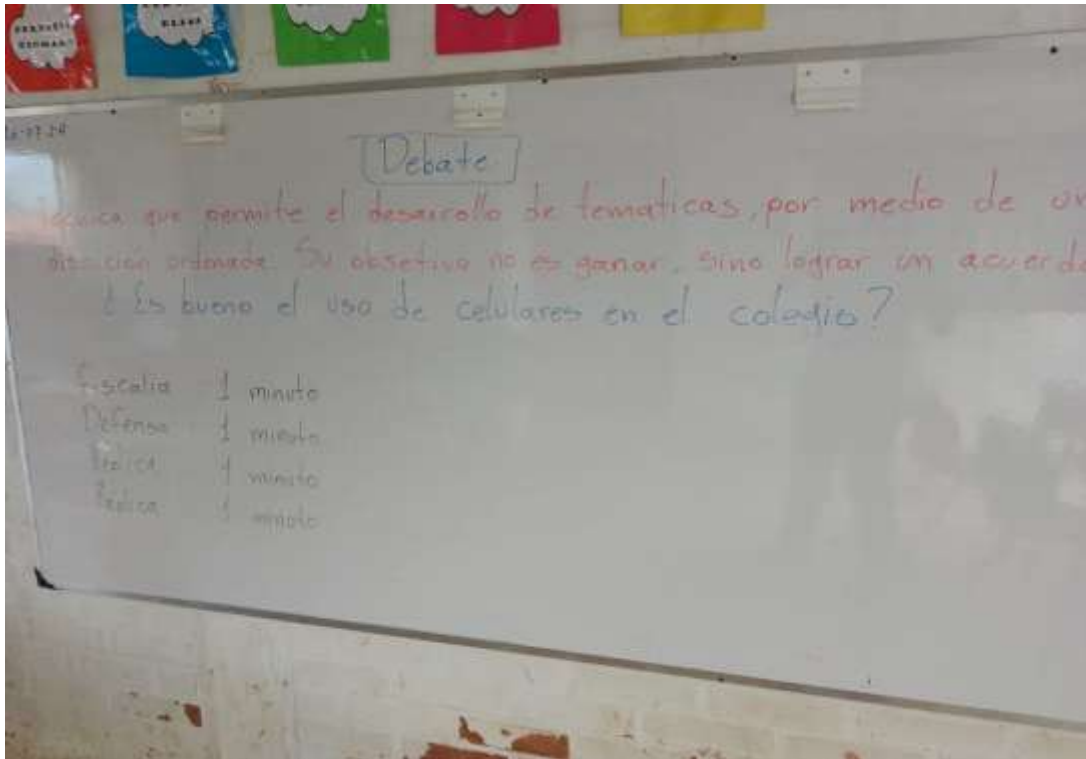 Debate
que permite el desarrollo de tematicas, por medio de
ordenada. Su objetivo no es ganar, sino lograr un acuerdo
¿Es bueno el uso de celulares en el colegio?
Fiscalia 1 minuto
Defensa 1 minuto
Replica 1 minuto
Replica 1 minuto